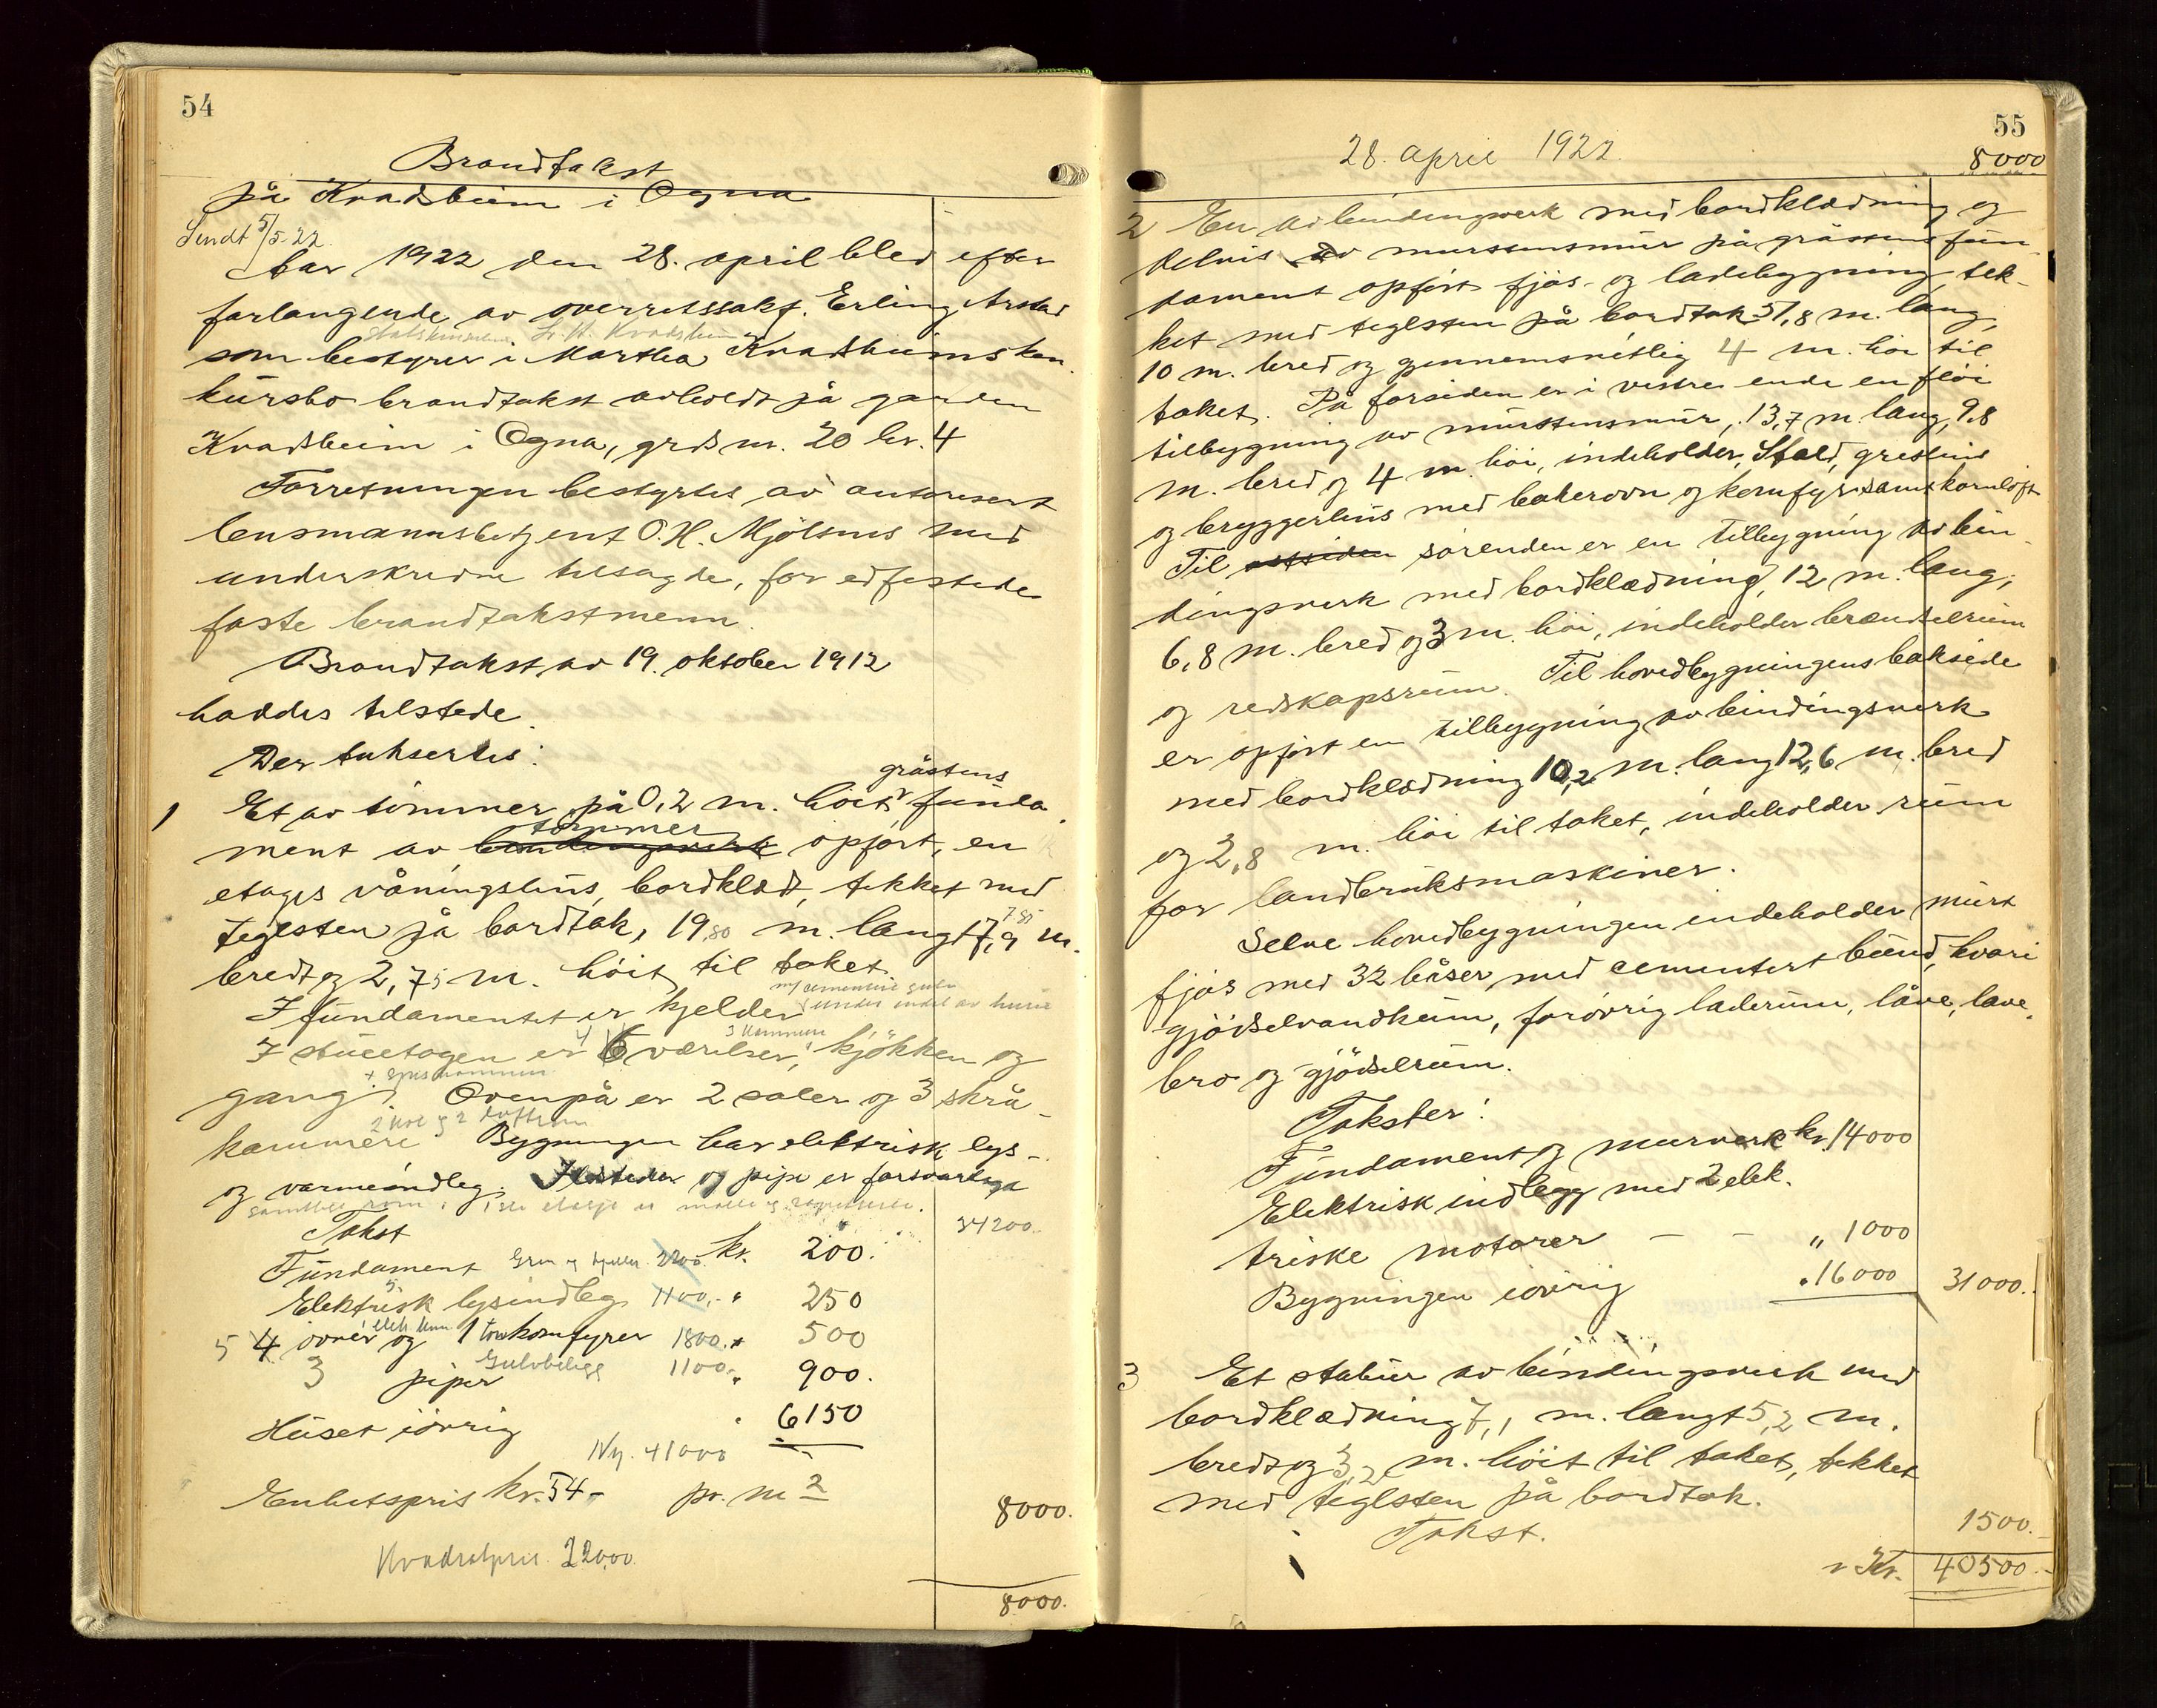 54
Brandtakst
på Kvadsheim i Ogna
Sendt 5/5-22.
Aar 1922 den 28. april blev efter
forlangende av overretssakf. Erling Årstad
som bestyrer i Martha Kvadsheims kon-
kursbo brandtakst avholdt på garden
Kvadsheim i Ogna, grds nr. 20 br. 4
Forretningen bestyrtes av autorisert
lensmannsbetjent O.H. Mjölsnes med
underskrevne tilsagde, for edfestede
faste brandtakstmenn.
Brandtakst av 19. oktober 1912
haddes tilstede.
Der takseres:
gråstens
1 Et av tömmer på 0,2 m. höit funda-
tømmer
ment av bindingsverk opfört, en
etages våningshus, bordklædt, tekket med
7.85
teglsten på bordtak, 19,80 m. langt 7,9 m.
bredt og 2,75 m. höit til taket.
m/ cementert gulv
I fundamentet er kjelder under endel av huset
3 kammere
I stueetagen er 4 6 værelser, kjökken og
+ spiskammer
gang. Ovenpå er 2 saler og 3 skrå-
2 kot og 2 loftsrum
kammere Bygningen har elektrisk lys-
og varmeindleg. Ildsteder og pipe er forsvarlige
samtlige rom i 1ste etasje er malte og
Takst 34200.
Fundament Grun og kjeller 2200. kr. 200.
Elektrisk lysindleg 1100,- " 250
5 4 övner og 1 komfyrer 1800. " 500
3 piper Gulvbelegg 1100. " 900.
Huset iövrig " 6150
Ny. 41000
Enhetspris kr. 54- pr. m 2
8000.
Kvadratpris. 22000.
8000.
55
28. april 1922.
8000
2 En av bindingsverk med bordklædning og
delvis av murstensmur på gråstens fun-
dament opfört fjös- og ladebygning, tek-
ket med teglsten på bordtak 31,8 m. lang,
10 m. bred og gjennemsnitlig 4 m. höi til
taket. På forsiden er i vestre ende en flöi
tilbygning av murstensmur, 13,7 m. lang, 9,8
m. bred og 4 m. höi, indeholder Stald, grisehus
og bryggerhus med bakerovn og komfyr samt kornloft
Til østsiden sörenden er en tilbygning av bin-
dingsverk med bordklædning, 12 m. lang,
6,8 m. bred og 3 m. höi, indeholder brændselrum
og redskapsrum. Til hovedbygningens bakside
er opfört en tilbygning av bindingsverk
med bordklædning 10,2 m. lang 12,6 m. bred
og 2,8 m. höi til taket, indeholder rum
for landbruksmaskiner.
Selve hovedbygningen indeholder murt
fjös med 32 båser med cementert bund, hvori
gjödselvandkum, forövrig laderum, låve, lave-
bro og gjödselrum.
Takster:
Fundament og murverk kr. 14000
Elektrisk indlegg med 2 elek-
triske motorer - - " 1000
Bygningen iövrig " 16000 31000.
3 Et stabur av bindingsverk med
bordklædning 7,1 m. langt 5,2 m.
bredt og 3,2 m. höit til taket, tekket
med teglsten på bordtak.
Takst. 1500.
Kr. 40500.-